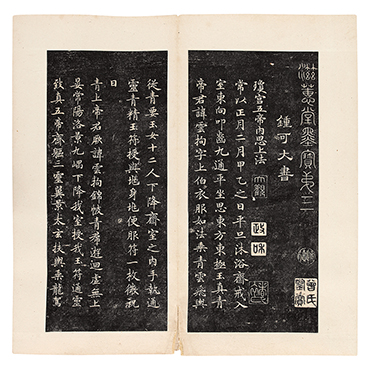 滋蕙堂墨寶卷三
鍾可大書
瓊宮五帝內思上法
政和
常以正月二月甲乙之日平旦沐浴齋戒入
室東向叩齒九通平坐思東方東極玉真青
帝君諱雲拘字上伯衣服如法乘青雲飛輿
從青要玉女十二人下降齋室之內手執通
靈青精玉符授與兆身兆便服符一枚微祝
曰
青上帝君厥諱雲拘錦帔青裙遊迴虛無上
晏常陽洛景九嵎下降我室授我玉符通靈
致真五帝齊軀三靈翼景太玄扶輿乘龍駕